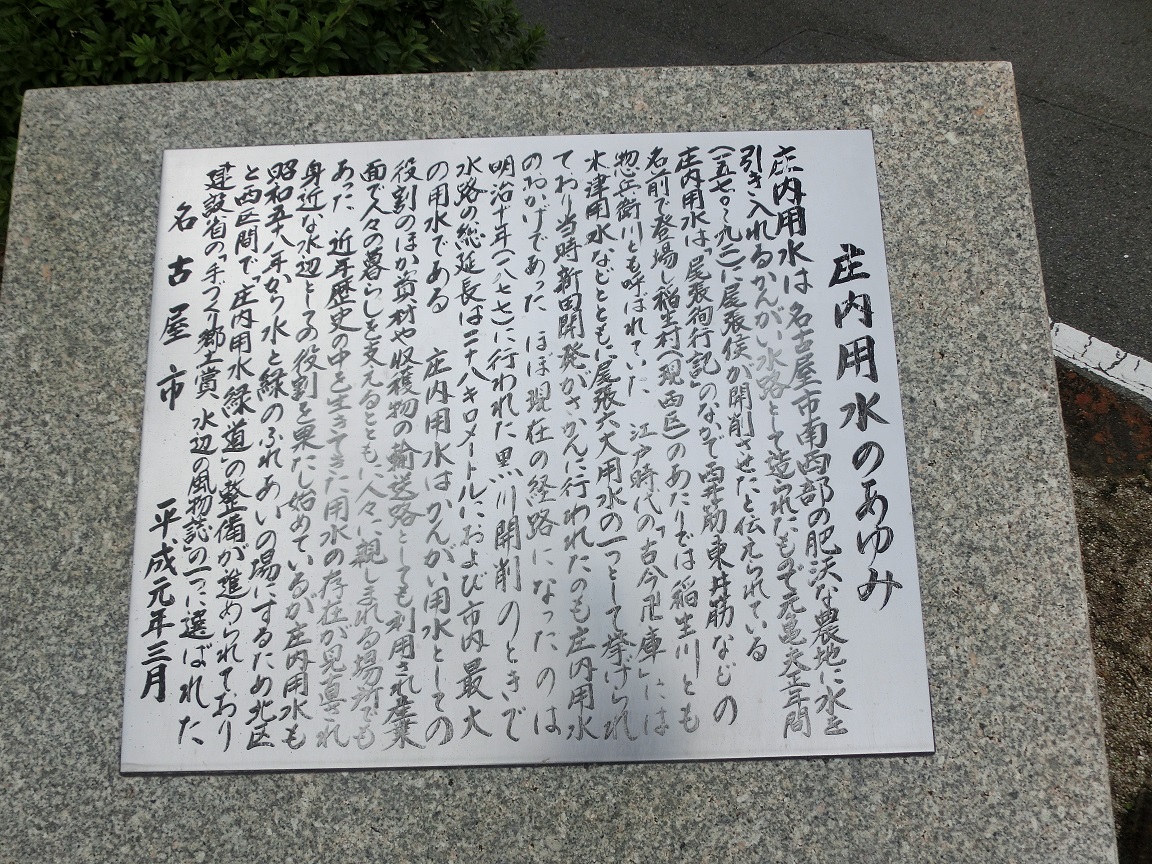 庄内用水のあゆみ
庄内用水は名古屋市南西部の肥沃な農地に水を
引き入れるかんがい水路として造られたもので元亀天正年間
(一五七〇〜九二)に尾張侯が開削させたと伝えられている
庄内用水は「尾張徇行記」のなかで西井筋東井筋などの
名前で登場し稲生村(現西区)のあたりでは稲生川とも
惣兵衛川とも呼ばれていた 江戸時代の「古今卍庫」には
木津用水などとともに尾張六大用水の一つとして挙げられ
ており当時新田開発がさかんに行われたのも庄内用水
のおかげであった ほぼ現在の経路になったのは
明治十年(一八七七)に行われた黒川開削のときで
水路の総延長は二十八キロメートルにおよび市内最大
の用水である 庄内用水はかんがい用水としての
役割のほか資材や収穫物の輸送路としても利用され産業
面で人々の暮らしを支えるとともに人々に親しまれる場所でも
あった 近年歴史の中を生きてきた用水の存在が見直され
身近な水辺としての役割を果たし始めているが庄内用水も
昭和五十八年から水と緑のふれあいの場にするため北区
と西区間で「庄内用水緑道」の整備が進められており
建設省の「手づくり郷土賞 水辺の風物誌」の一つに選ばれた
名古屋市 平成元年三月